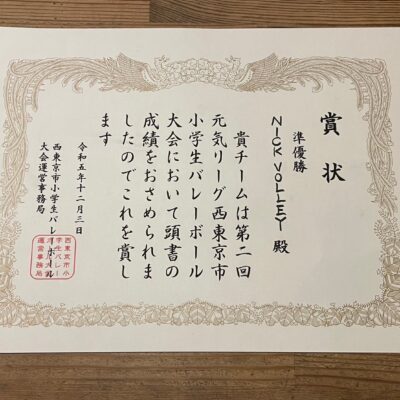 賞状
準優勝
NICK VOLLEY 殿
貴チームは第二回
元気リーグ西東京市
小学生バレーボール
大会において頭書の
成績をおさめられま
したのでこれを賞し
ます
令和五年十二月三日
西東京市小学生バレーボール
大会運営事務局
西東京市小
学生バレー
運営事務局